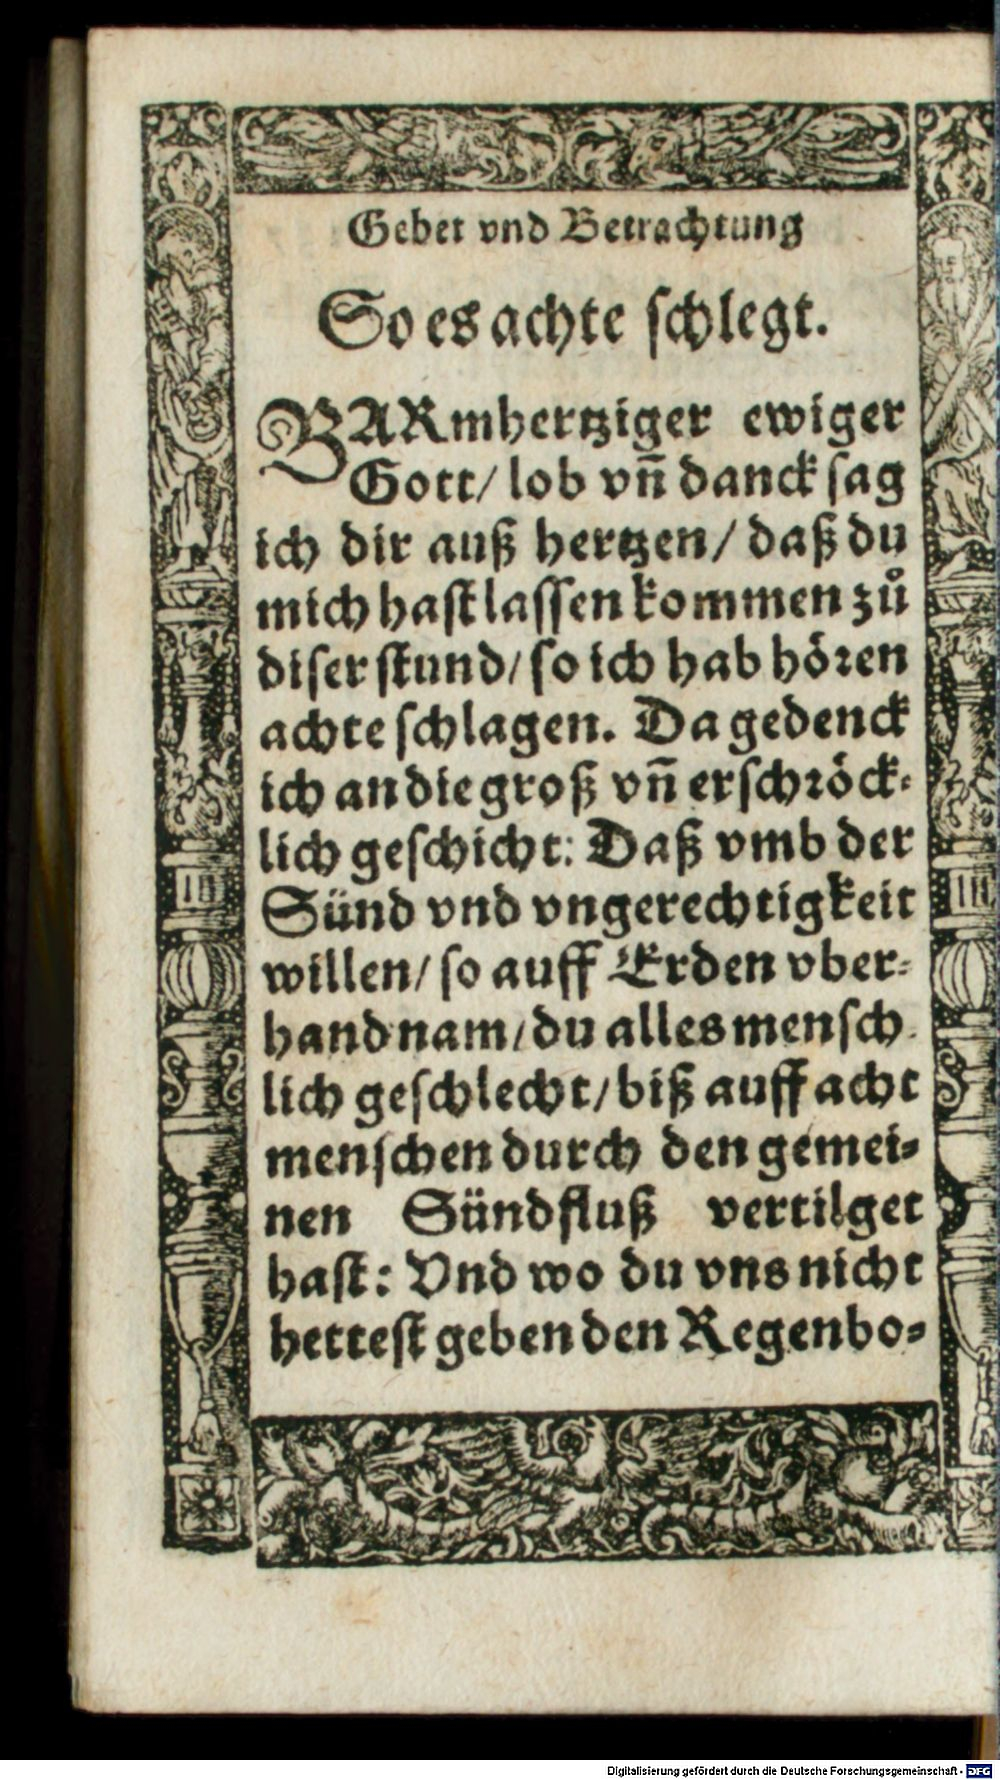 Gebet vnd Betrachtung
So es achte schlegt.
BARmhertziger ewiger
Gott/ lob vñ danck sag
ich dir auß hertzen/ daß du
mich hast lassen kommen zů
diser stund/ so ich hab hören
achte schlagen. Da gedenck
ich an die groß vñ erschröck-
lich geschicht: Daß vmb der
Sünd vnd vngerechtigkeit
willen/ so auff Erden vber-
hand nam/ du alles mensch-
lich geschlecht/ biß auff acht
menschen durch den gemei-
nen Sündfluß vertilget
hast: Vnd wo du vns nicht
hettest geben den Regenbo-
Digitalisierung gefördert durch die Deutsche Forschungsgemeinschaft - DFG